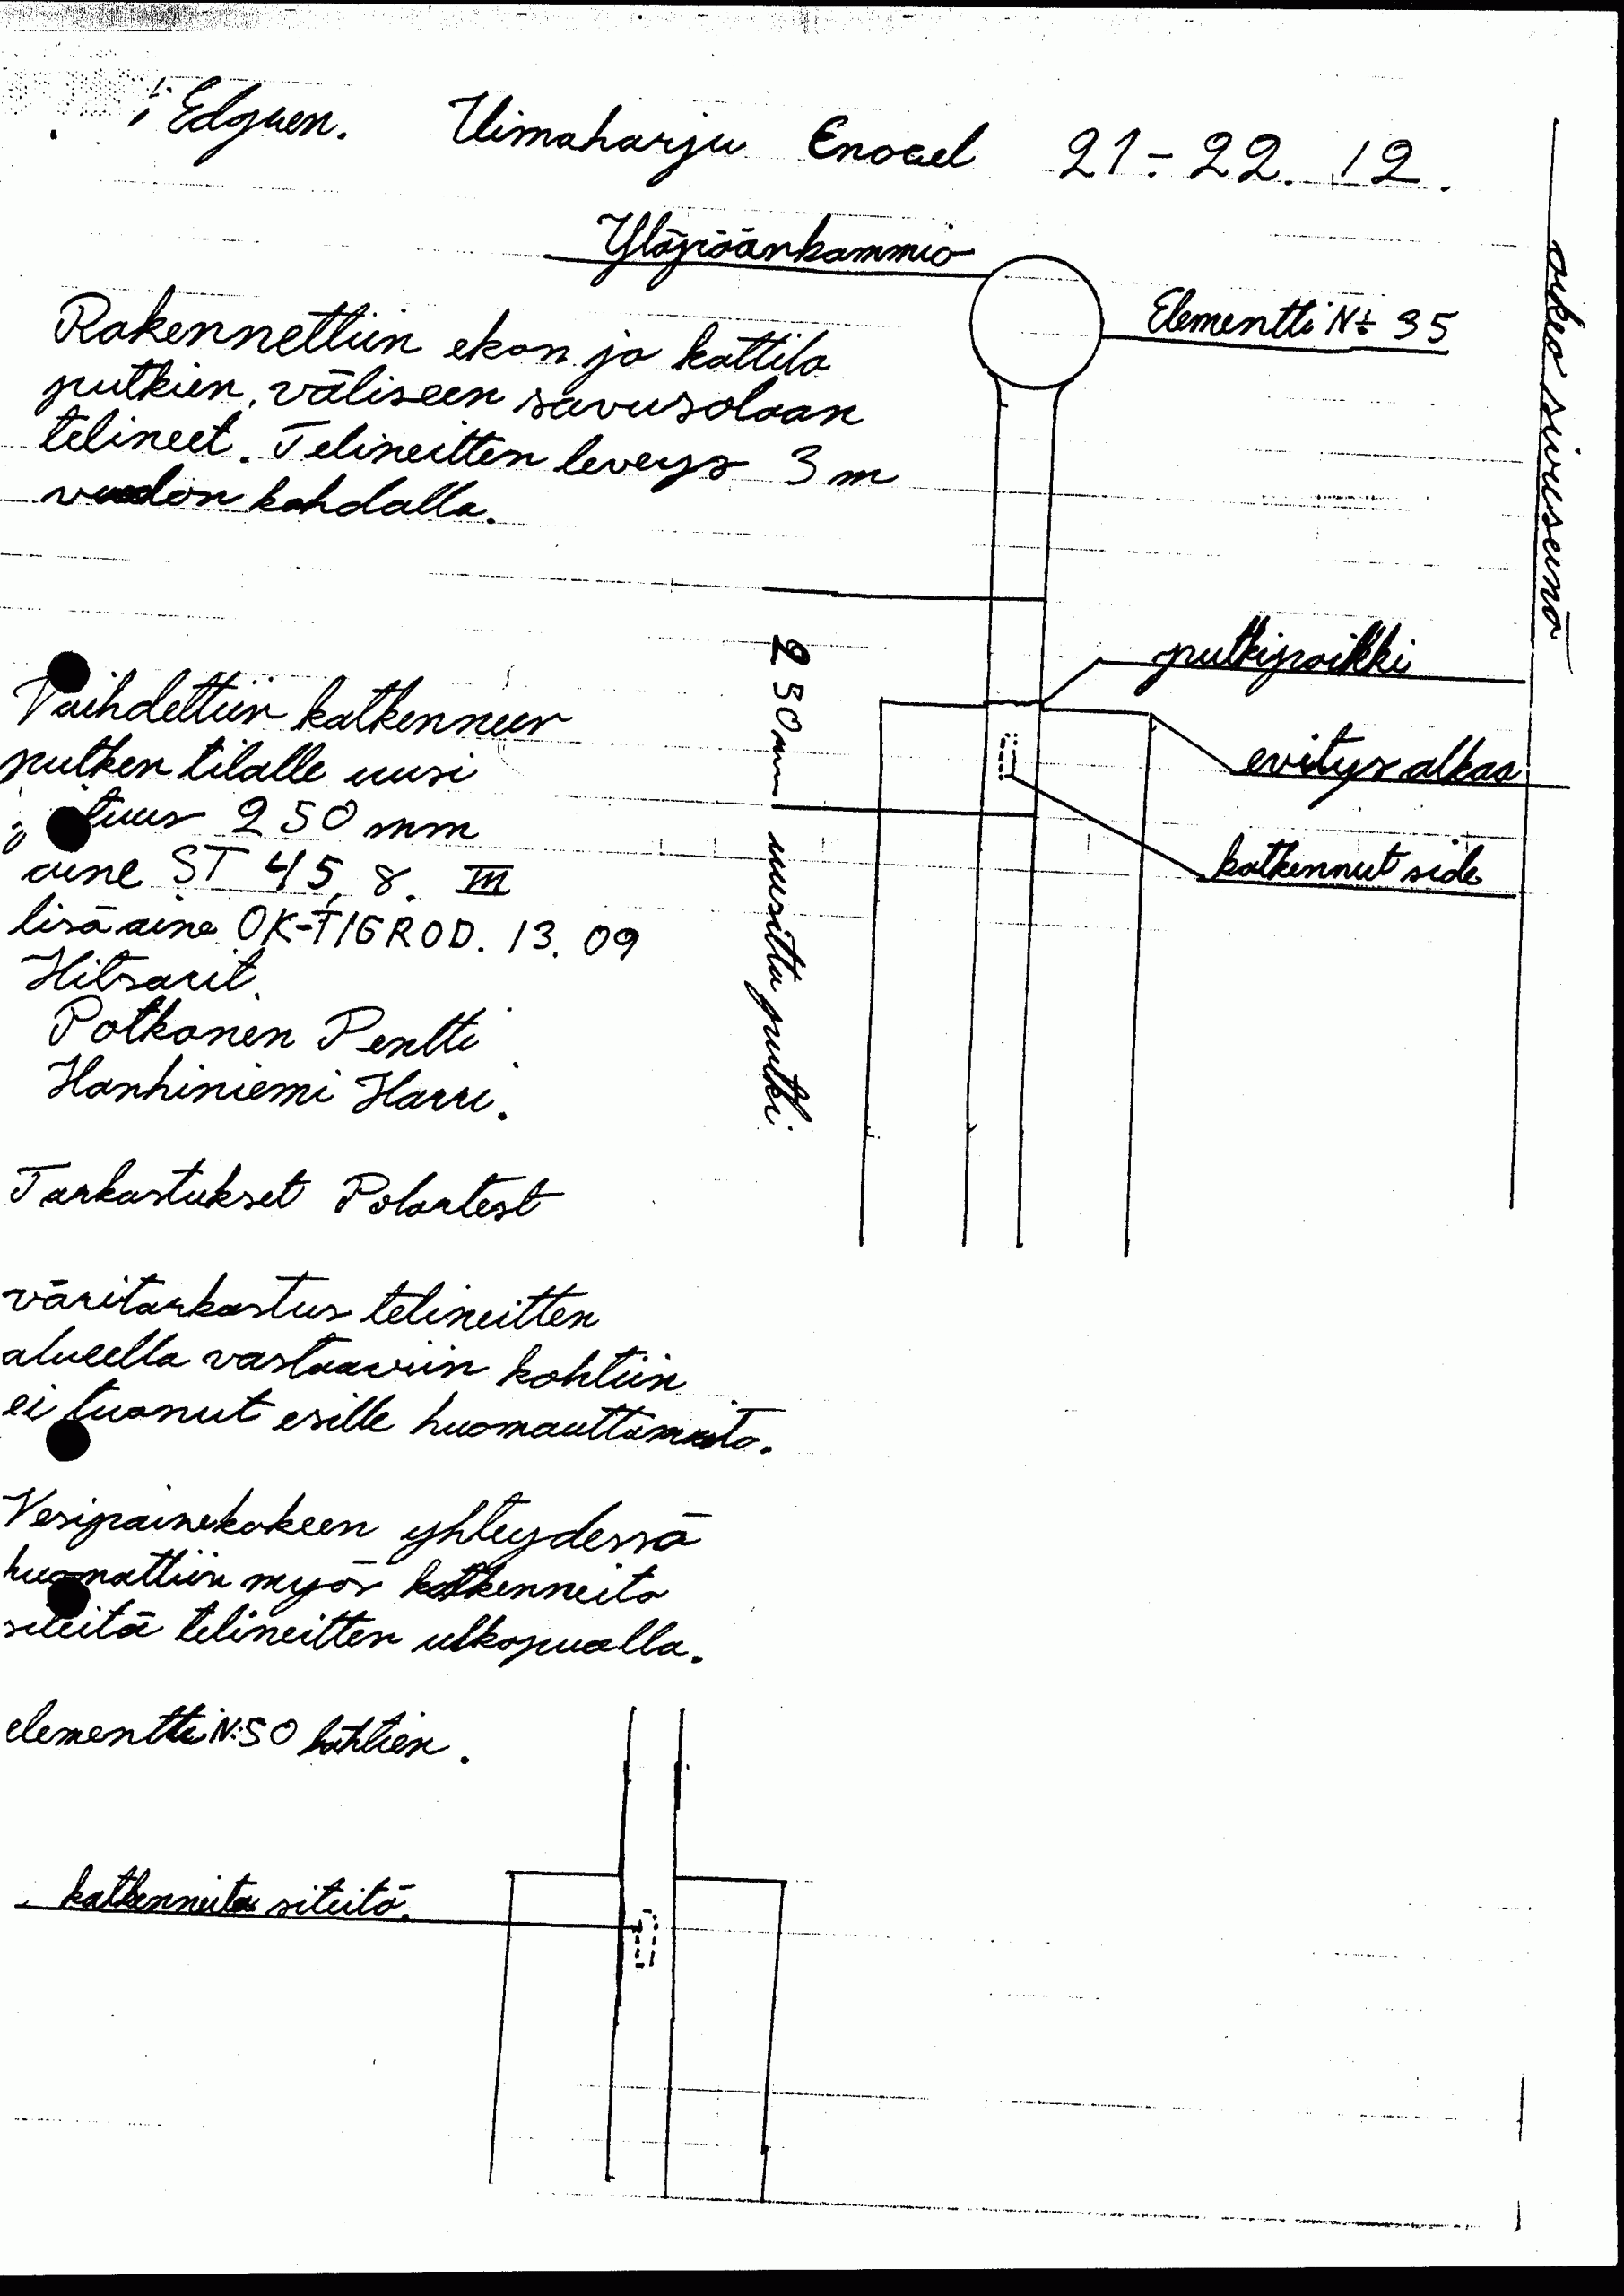 Edgren. Uimaharju Enocel 21-22.12.
Yläpäänkammio
Elementti N:35
oikea sivuseinä
Rakennettiin ekon ja kattila
putkien väliseen savusolaan
telineet. Telineitten leveys 3 m
vuodon kohdalla.
putkipoikki
evitys alkaa
katkennut side
250 mm uusittu putki
Vaihdettiin katkenneen
putken tilalle uusi
250 mm
aine ST 45,8. III
lisäaine OK-TIGROD. 13.09
Hitsarit.
Potkonen Pentti
Hanhiniemi Harri.
Tarkastukset Polartest
väritarkastus telineitten
alueella vastaaviin kohtiin
ei tuonut esille huomauttamista.
Vesipainekokeen yhteydessä
huomattiin myös katkenneita
siteitä telineitten ulkopuolla.
elementti N:50 lähtien.
katkenneita siteitä.